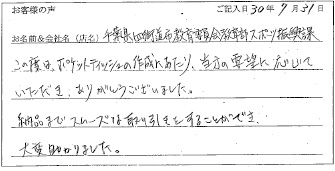 お客様の声 ご記入日 30年 7月 31日
お名前&会社名(店名) 千葉県四街道市教育委員会教育部スポーツ振興課
この度は、ポケットティッシュの作成にあたり、当方の要望に応じて
いただき、ありがとうございました。
納品までスムーズな取り引きをすることができ、
大変助かりました。